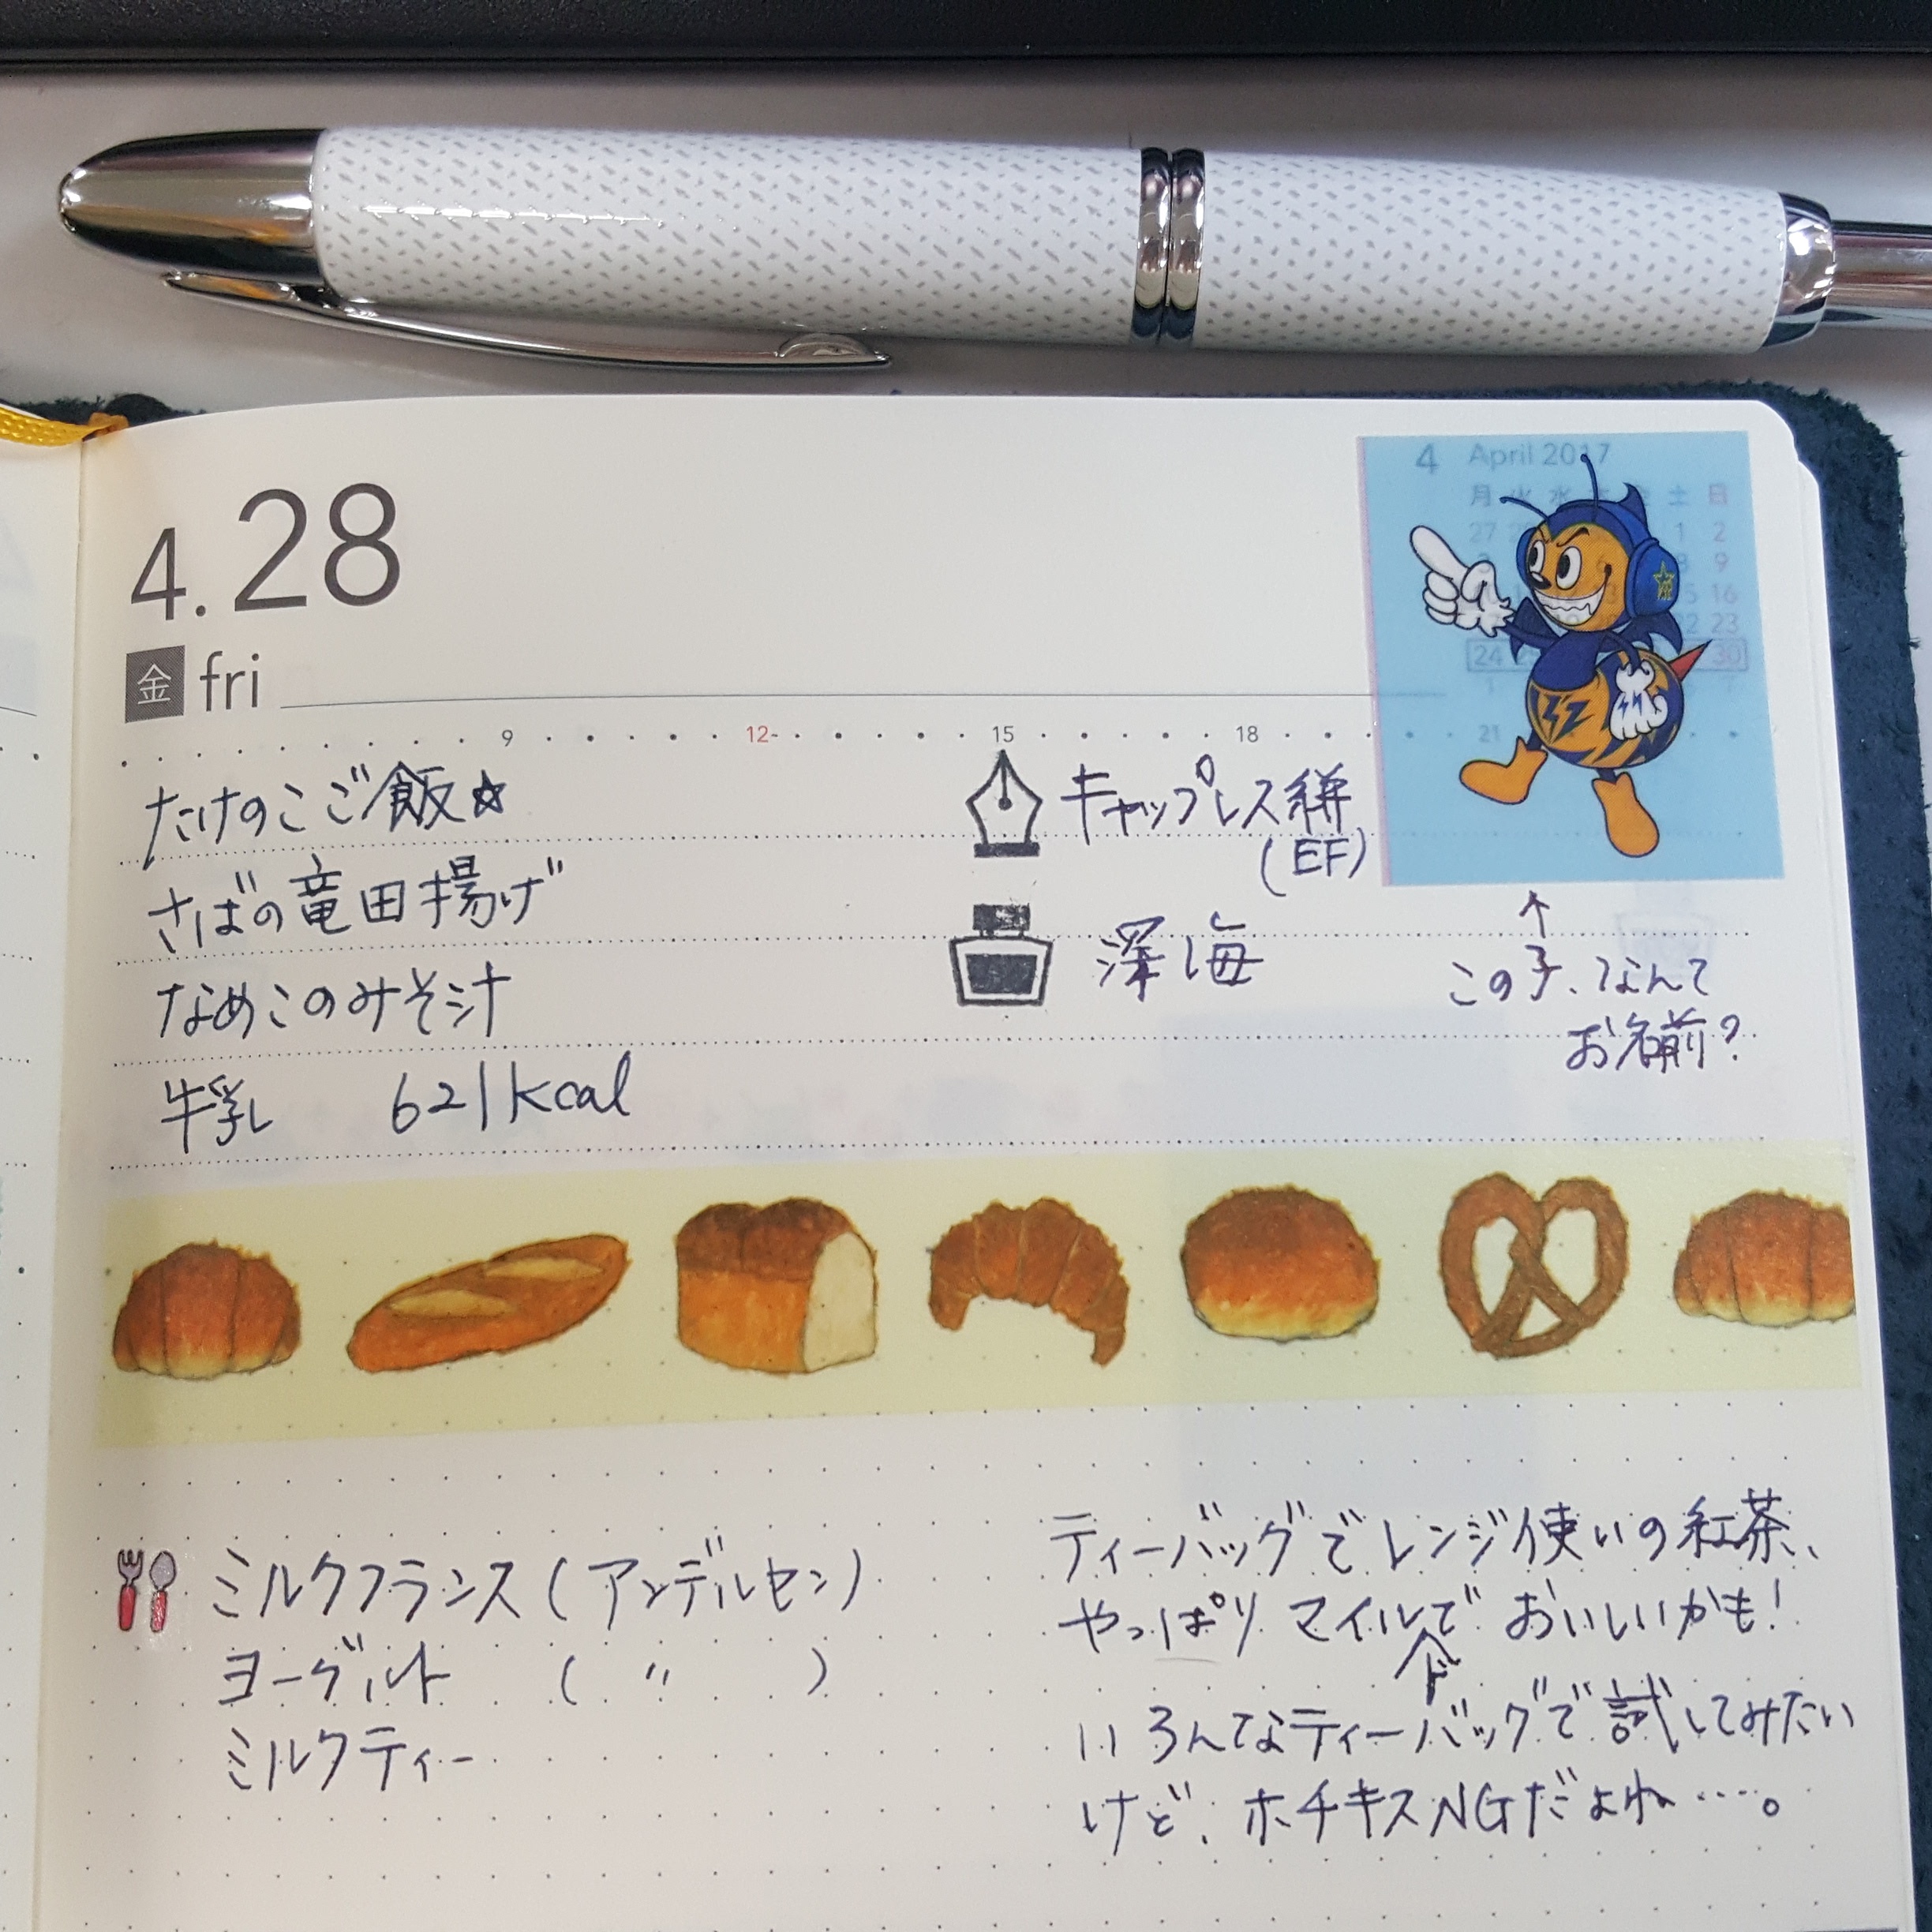 4.28
金 fri
4 April 2017
月 火 水 土 日
27 1 2
9
16
22 23
24 30
1 7
9 12 15 18 21
たけのこご飯☆
さばの竜田揚げ
なめこのみそ汁
牛乳 621kcal
キャップレス絣
(EF)
深海
↑
この子、なんて
お名前?
ミルクフランス(アンデルセン)
ヨーグルト ( 〃 )
ミルクティー
ティーバッグでレンジ使いの紅茶、
やっぱりマイルドでおいしいかも!
いろんなティーバッグで試してみたい
けど、ホチキスNGだよね……。